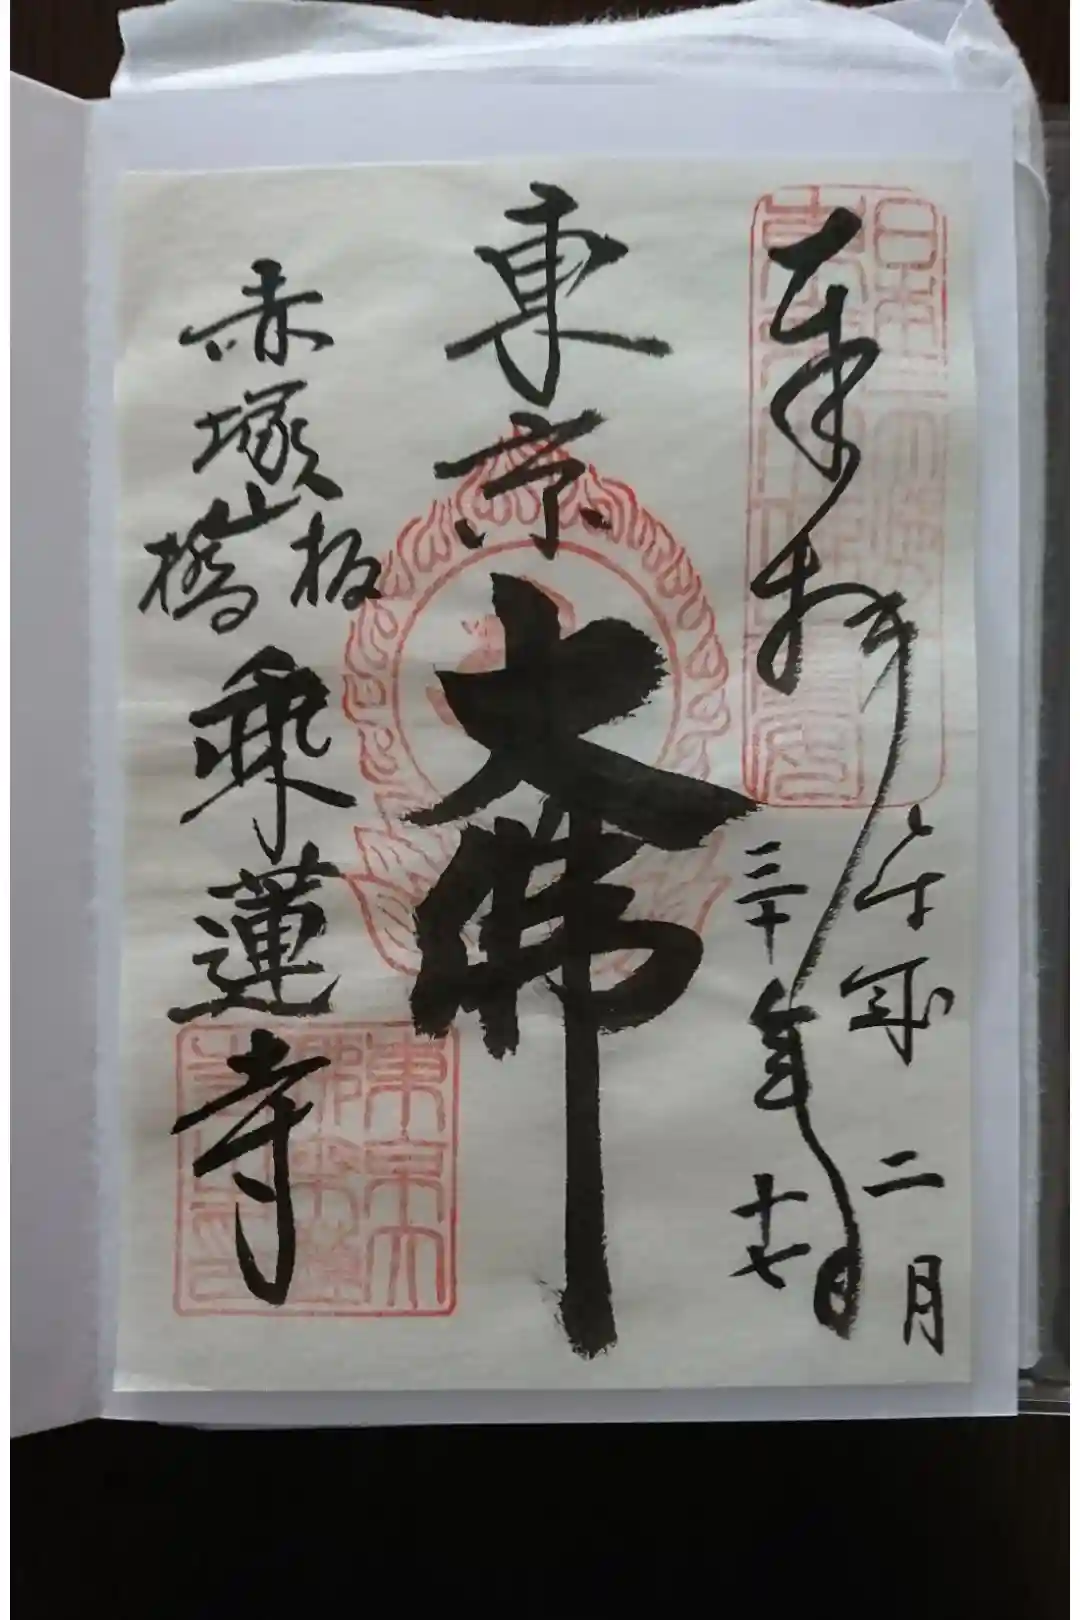 奉拝
平成二月
三十年十七日
東京
大佛
赤塚山
板橋
乗蓮寺
東京大